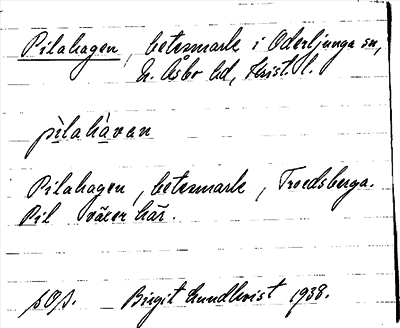 Pilahagen, betesmark i Oderljunga sn,
N. Åsbo hd, Krist. l.
pìlahàvan
Pilahagen, betesmark, Troedsberga.
Pil växer här.
sOs. Birgit Lundkvist 1938.